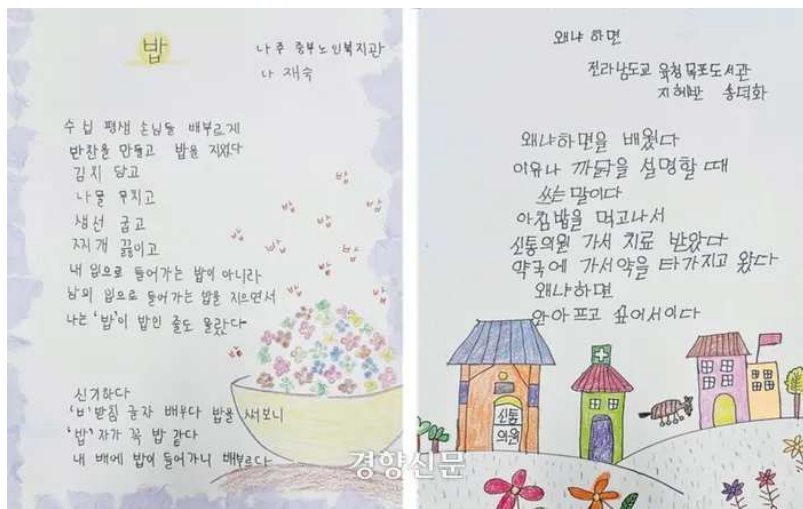 밥
나주 중부노인복지관
나 재숙
수 십 평생 손님들 배부르게
반찬을 만들고 밥을 지었다
김치 담고
나물 무치고
생선 굽고
찌개 끓이고
내 입으로 들어가는 밥이 아니라
남의 입으로 들어가는 밥을 지으면서
나는 '밥'이 밥인 줄도 몰랐다
신기하다
'ㅂ' 받침 글자 배우다 밥을 써보니
'밥' 자가 꼭 밥 같다
내 배에 밥이 들어가니 배부르다
밥
밥
밥
밥
밥
밥
밥
밥
밥
밥
밥
왜냐 하면
전라남도교육청목포도서관
지혜반 송덕화
왜냐하면을 배웠다
이유나 까닭을 설명할 때
쓰는 말이다
아침밥을 먹고나서
신통의원 가서 치료 받았다
약국에 가서약을 타가지고 왔다
왜냐하면
안아프고 싶어서이다
신통
의원
경향신문